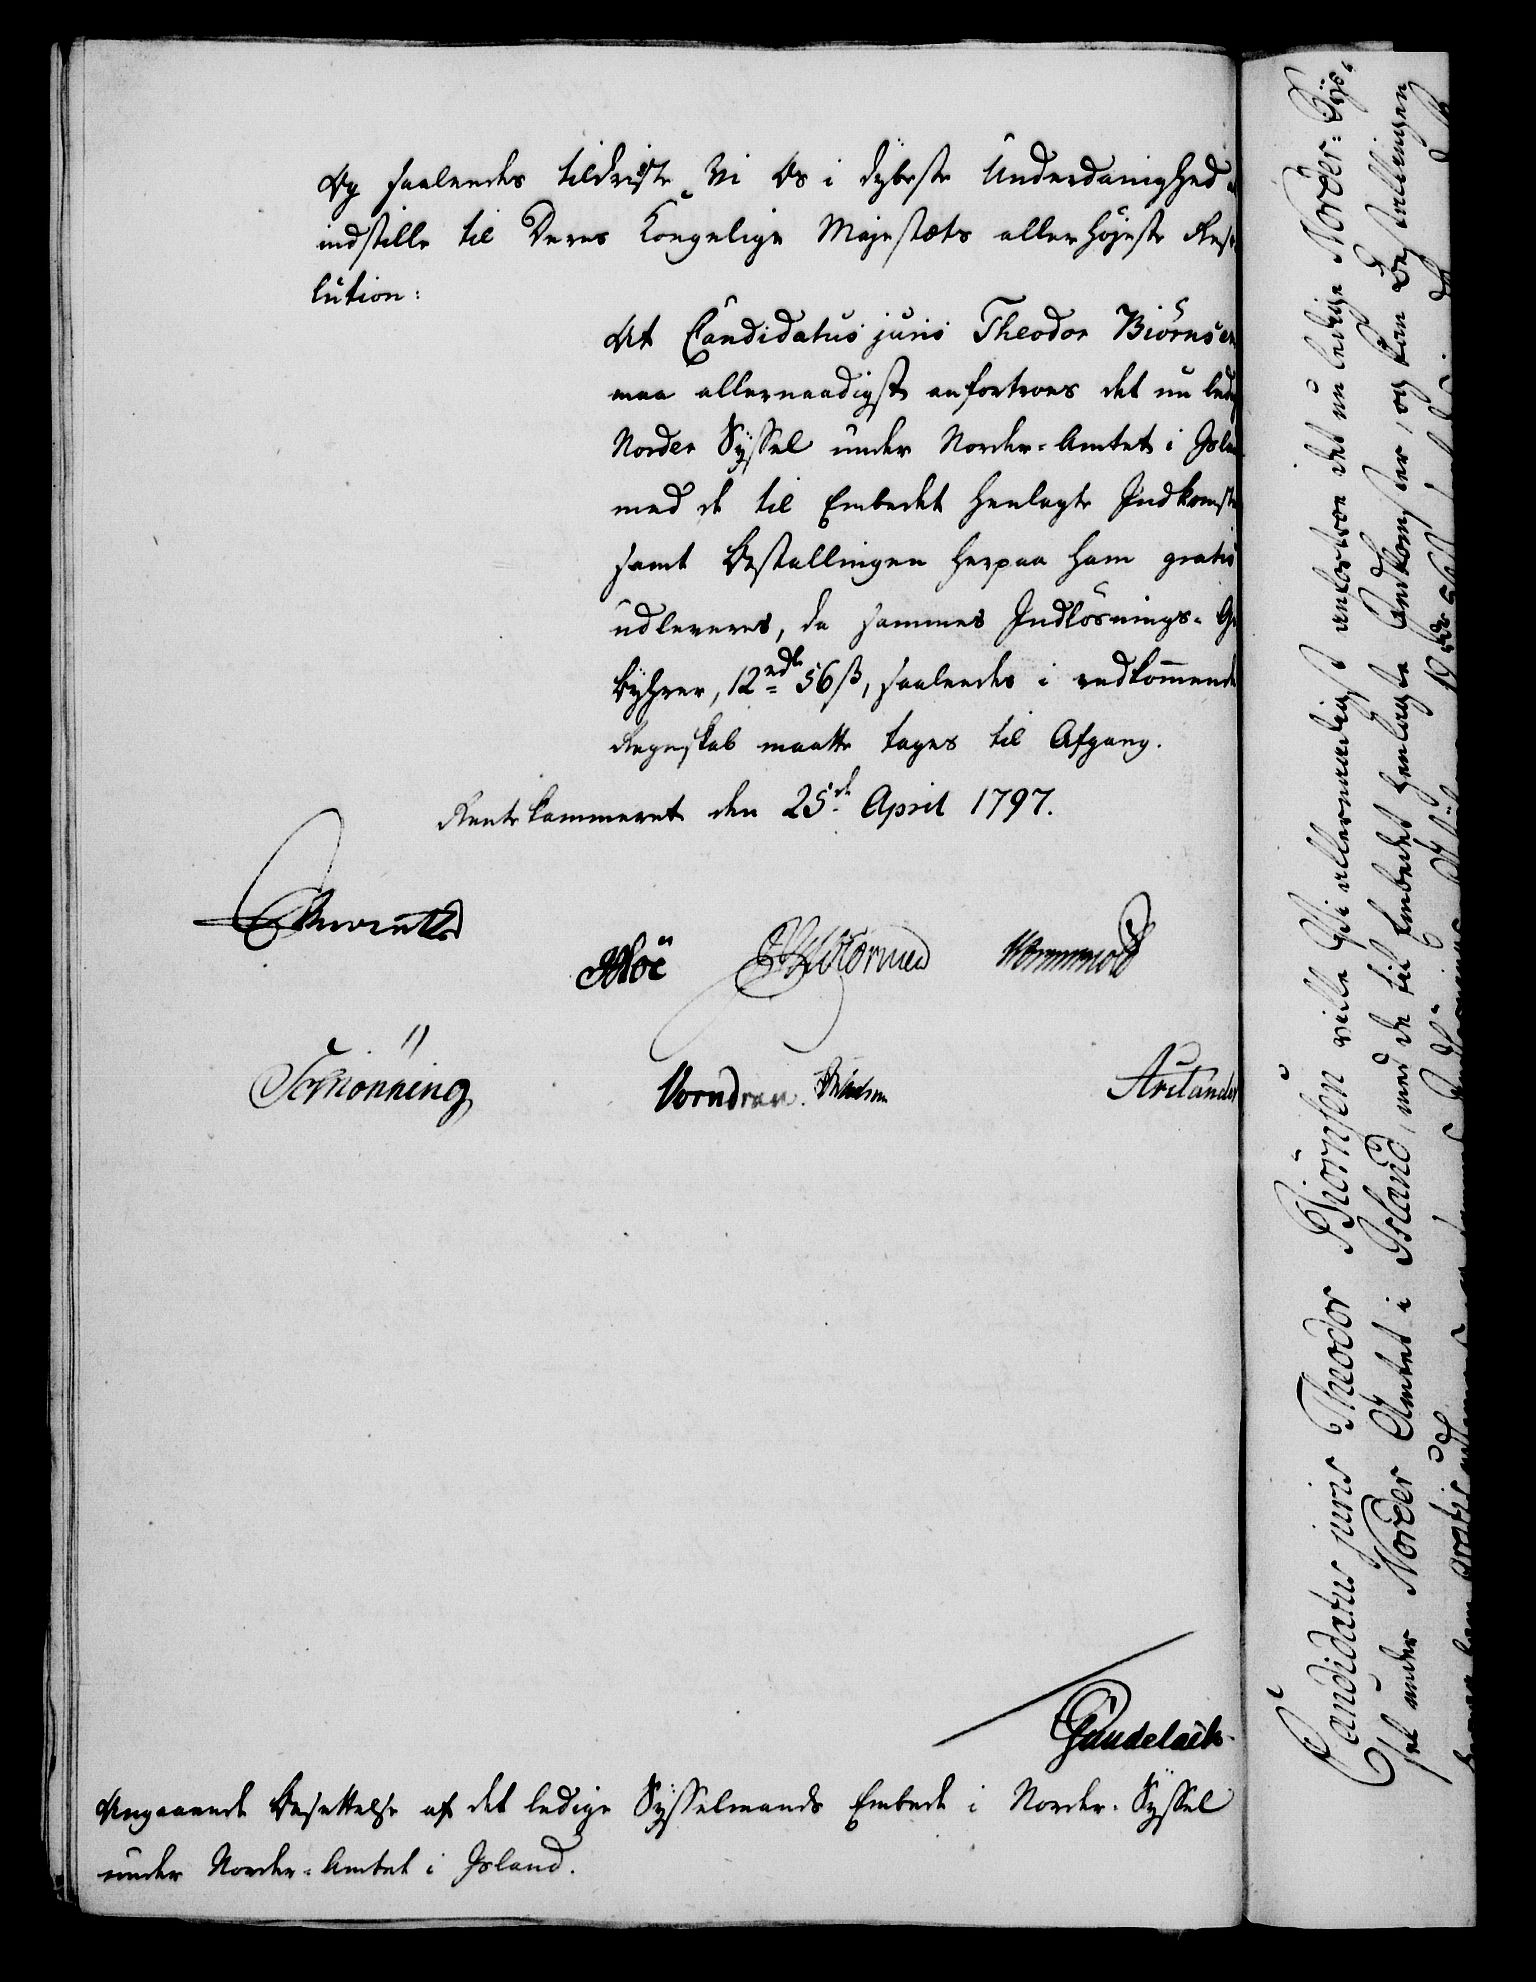 Og saaledes tildriste Vi Os i dybeste Underdanighed
indstille til Deres Kongelige Majestæts allerhöjeste Reso
lution:
At Candidatus juris Theodor Biörnsen
maa allernaadigst anfortroes det nu ledi
Norder Syssel under Norder-Amtet i Islan
med de til Embedet henlagte Indkomste
samt Bestallingen herpaa ham gratis
udleveres, da sammes Indlösnings- Ge
byhrer, 12 rdr 56 ß, saaledes i vedkommende
Regnskab maatte tages til Afgang.
Rente Kammeret den 25de April 1797.
Schiönning
Vorndran.
Arctander
Gundelach
Angaaende Besættelse af det ledige Sysselmands Embede i Norder-Syssel
under Norder-Amtet i Island.
Candidatus juris Theodor Biörnsen ville Vi allernaadigst anfortroe det nu ledige Norder-Sys-
sel under Norder Amtet i Island, med de til Embedet henlagte Indkomster, og kan Bestallingen
gratis